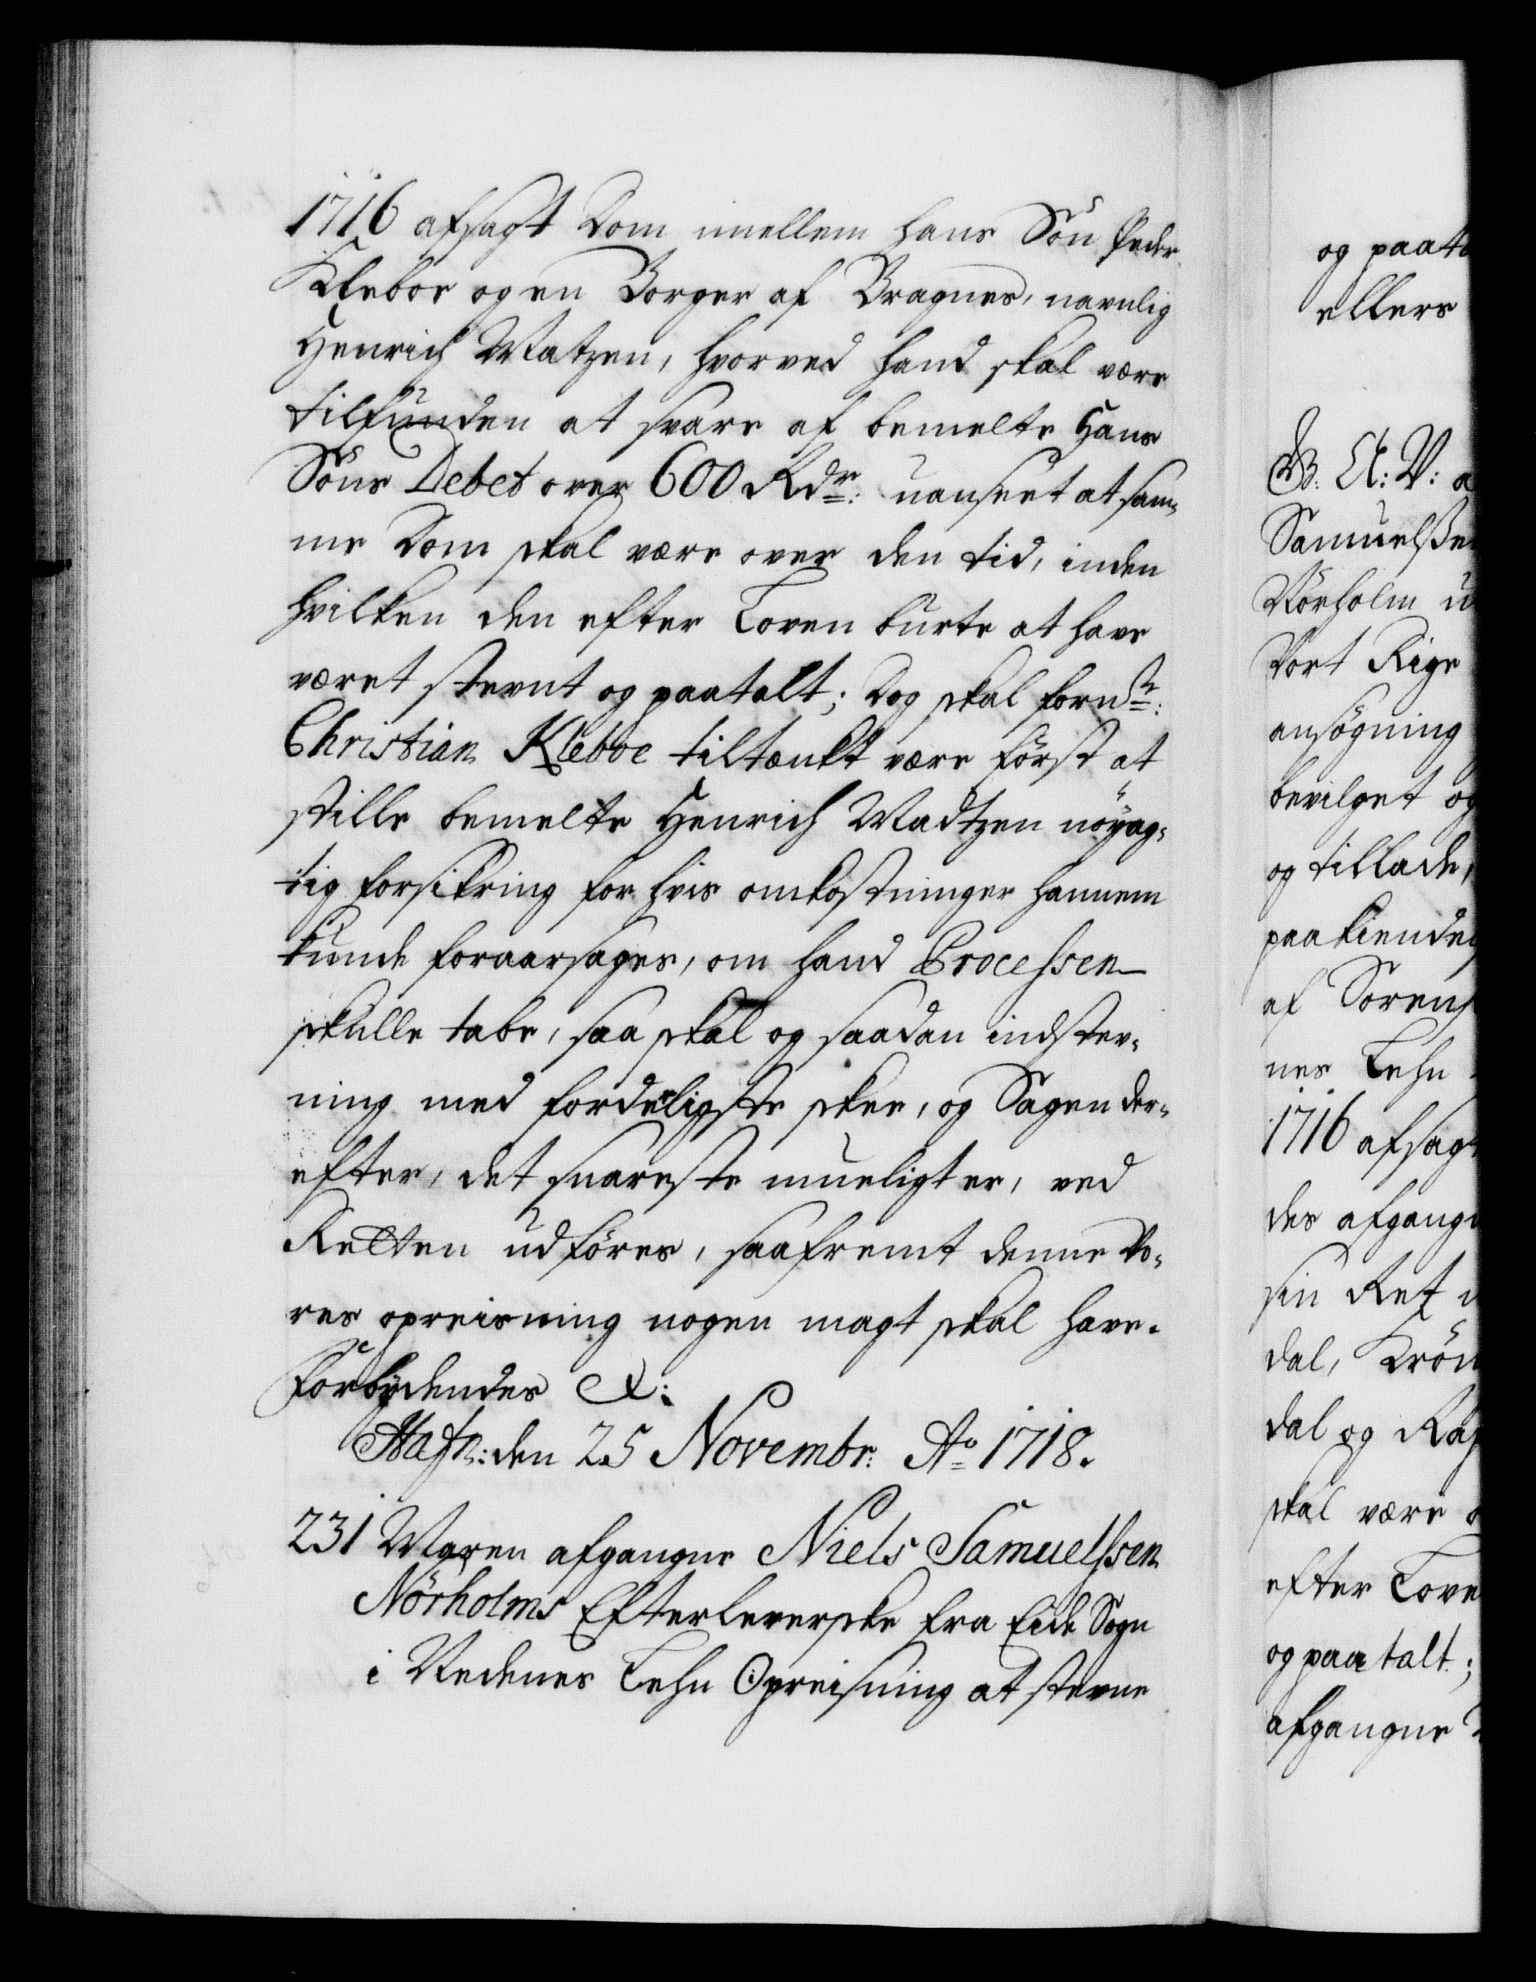 1716 afsagt Dom imellem hans Sön Peder
Kleboe og en Borger af Bragnes, navnlig
Henrich Matzen, hvorved hand skal være
tilfunden at svare af bemelte Hans
Söns Debet over 600 Rdr: uanseet at sam-
me Dom skal være over den tid, inden
hvilken den efter Loven burte at have
været stevnt og paatalt; Dog skal fornte:
Christian Kleboe tiltænkt være först at
stille bemelte Henrich Madtzen nöyag-
tig forsikring for hvis omkostninger hannem
kunde foraarsages, om hand Processen
skulle tabe, saa skal og saadan indstev-
ning med forderligste skee, og Sagen der-
efter, det snareste mueligt er, ved
Retten udföres, saafremt denne Vo-
res opreisning nogen magt skal have.
Forbydendes &:
Hafn: den 25 Novembr: Ao 1718.
231 Maren afgangne Niels Samuelssen
Nörholms Efterleverske fra Eide Sogn
i Nedenes Lehn Opreisning at stevne
og paata
ellers
G. A: V: a
Samuelsse
Nörholm u
Vort Rige
ansögning
bevilget og
og tillade,
paakiende
af Sörens
nes Lehn
1716 afsagt
des afgangn
sin Ret
dal,
dal og
skal være o
efter Love
og paatalt;
afgangne